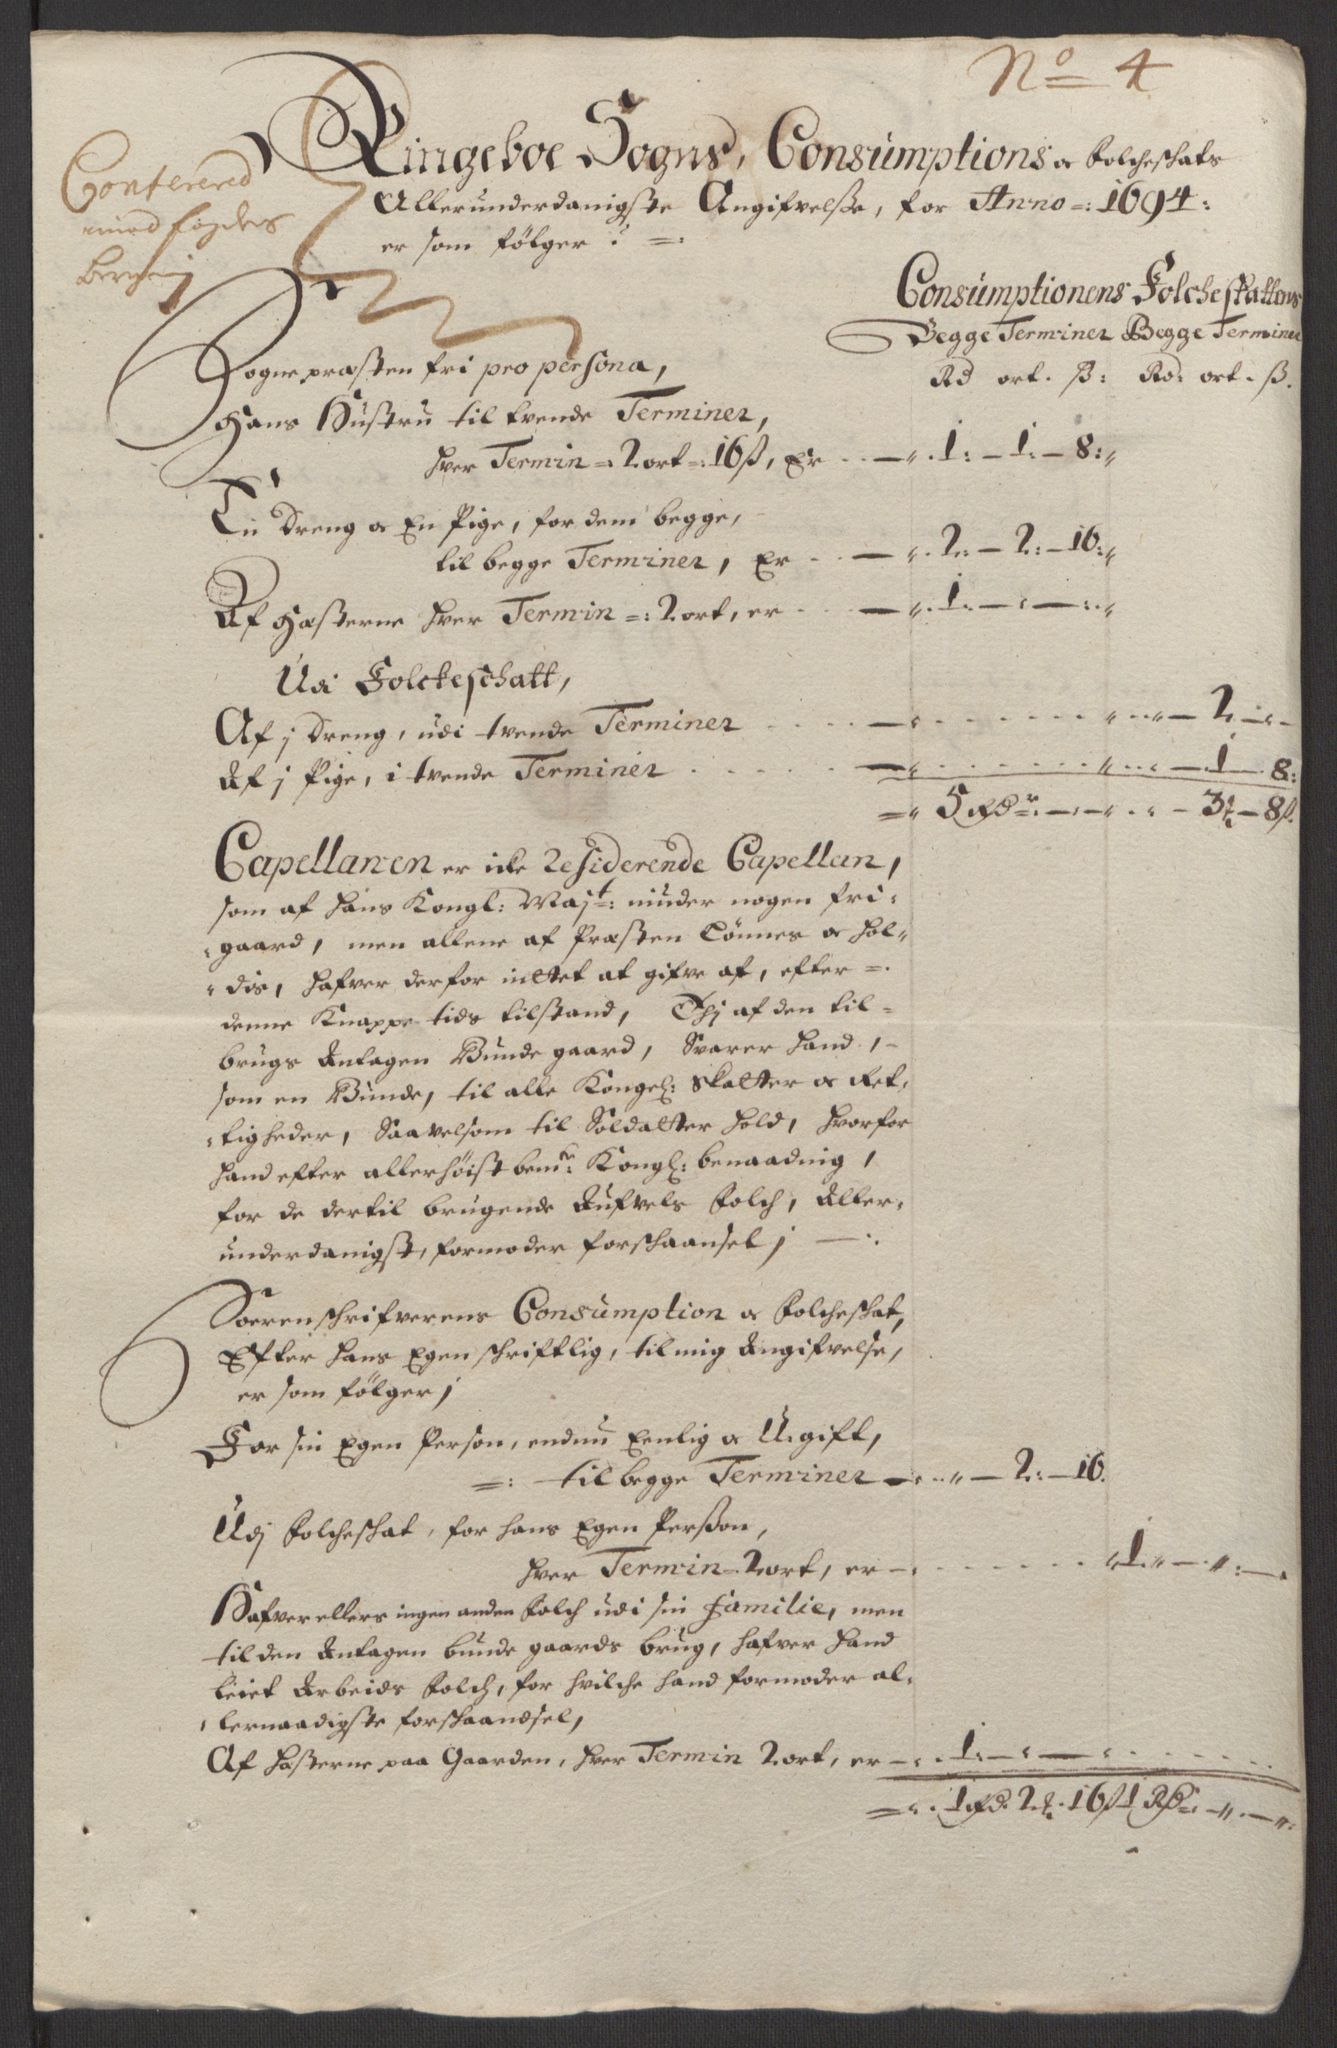 No 4
Ringeboe Sogns, Consumptions oc Folcheschats
Allerunderdanigste Angifvelsse, for Anno =: 1694:
er som følger : =:
Conferered
med fogdens
Consumptionens Folcheskattens
Begge Terminer Begge Terminer
Rd ort. ß: Rd: ort. ß.
Sognepræsten fri pro persona,
Hans Hustru til tvende Terminer,
hver Termin =: 2 ort =: 16 ß, Er - 1: - 1: - 8:
En Dreng oc En Pige, for dem begge,
til begge Terminer, Er - 2: - 2: - 16:
Af Hæsterne hver Termin =: 2 ort, er - 1. -
Udi Folckeschatt,
Af j Dreng, udi tvende Terminer - 2. -
Af j Pige, i tvende Terminer - 1 - 8:
= 5 Rdr - 3 ort - 8 ß.
Capellanen er icke Residerende Capellan,
som af Hans Kongl: Mayt: niuder nogen fri-
gaard, men allene af Præsten Lønnes oc hol-
dis, hafver derfor inttet at gifve af, efter =.
denne Knappe tids tilstand, Thj af den til-
brugs Antagen Bunde gaard, Svarer hand, -
som en Bunde, til alle Kongel: Skatter oc Ret-
tigheder, Saavelsom til Soldatter hold, hvorfor
hand efter allerhøist bemte: Kongl: benaadnig,
for de dertil brugende Aufvels Folch, Aller-
underdanigst, formoder forschaansel j
Sorenschrifverens Consumption oc Folcheschat,
Efter hans Egen schriftlig, til mig Angifvelse,
er som følger j
For sin Egen Person, endnu Eenlig oc Ugift,
=: til begge Terminer - 2: - 16.
Udj Folcheschat, for hans Egen Persson,
hver Termin =. 2 ort, er - 1. -
Hafver ellers ingen anden Folch udi sin familie, men
til den Antagen bunde gaards brug, hafver hand
leiet Arbeids Folch, for hvilche hand formoder al-
lernaadigste forschaandsel,
Af Hæsterne paa Gaarden, hver Termin 2 ort, er - 1. -
= 1 Rd. 2 ort. 16 ß 1 Rd =. -